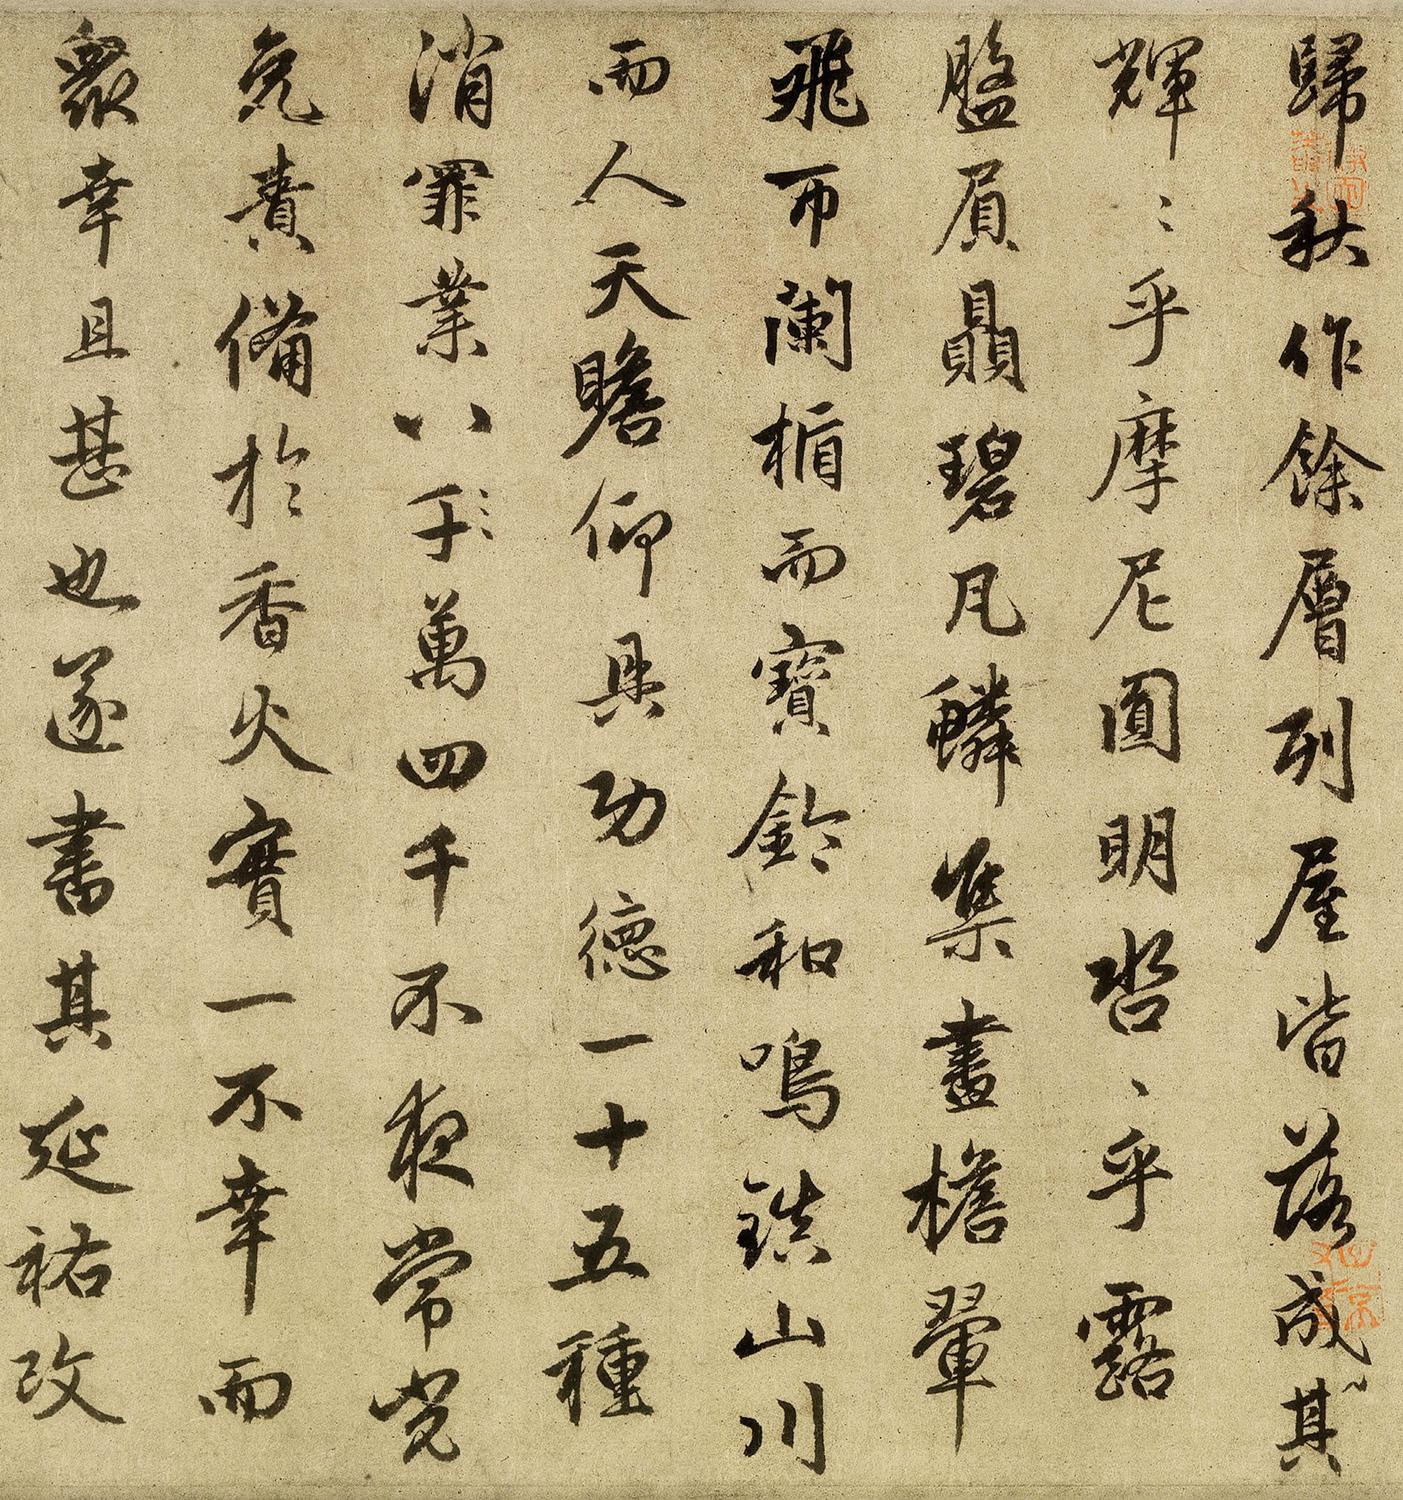 歸秋作餘層列屋皆落成其
輝〻乎摩尼圓明沓〻乎露
盤眉贔碧瓦鱗集畫檐翬
飛帀闌楯而寶鈴和鳴鎮山川
而人天瞻仰具功德一十五種
消罪業八于萬四千不夜常光
免責備於香火實一不幸而
衆幸且甚也遂書其延祐改